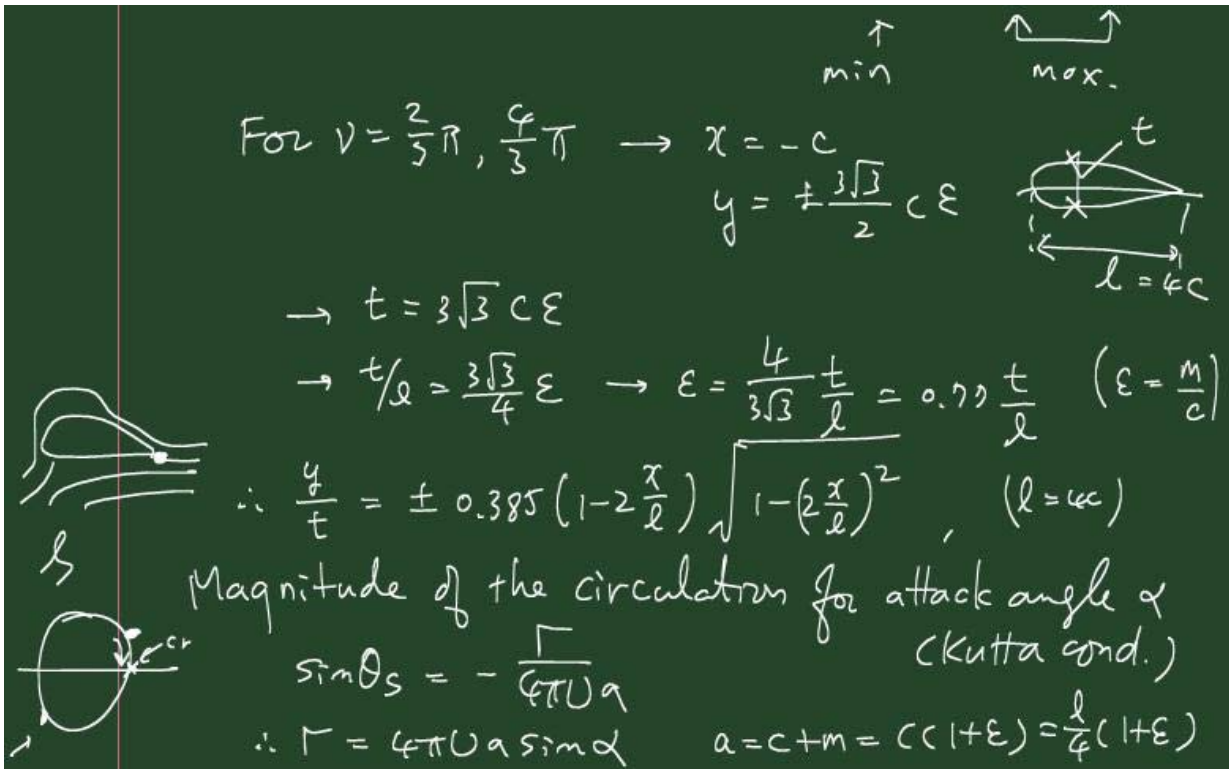 min max.
For ν = 2/3 π, 4/3 π → x = -c
y = ± 3√3/2 c ε
t
l = 4c
→ t = 3√3 c ε
→ t/l = 3√3/4 ε → ε = 4/(3√3) t/l = 0.77 t/l (ε = m/c)
∴ y/t = ± 0.385 (1-2 x/l) √(1-(2 x/l)²) , (l = 4c)
Magnitude of the circulation for attack angle α
(Kutta cond.)
cr
sinθs = - Γ/(4πUa)
∴ Γ = 4πUa sinα a = c+m = c(1+ε) = l/4 (1+ε)